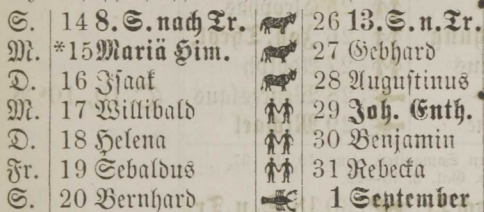 S. 14 8. S. nach Tr. 26 13. S. n. Tr.
M. *15 Mariä Him. 27 Gebhard
D. 16 Isaak 28 Augustinus
M. 17 Willibald 29 Joh. Enth.
D. 18 Helena 30 Benjamin
Fr. 19 Sebaldus 31 Rebecka
S. 20 Bernhard 1 September